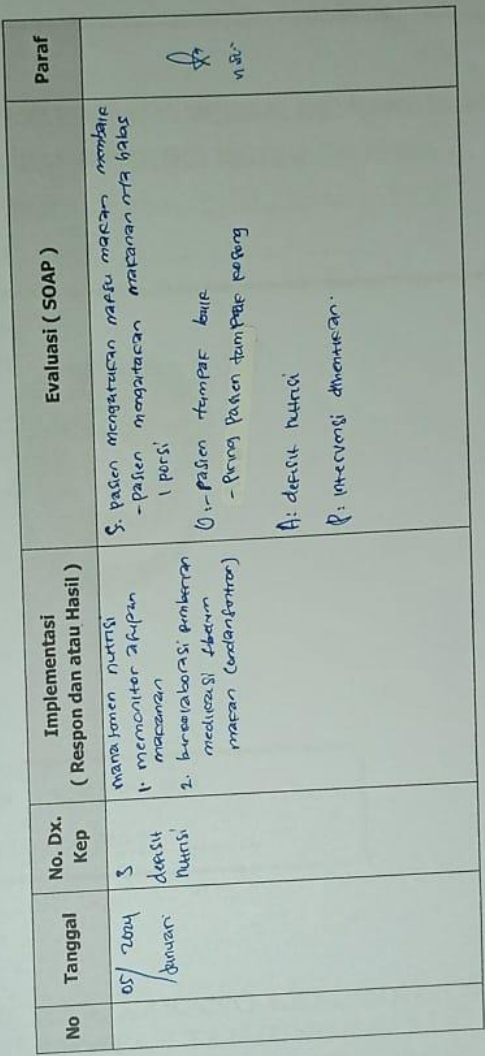 No
Tanggal
No. Dx.
Kep
Implementasi
( Respon dan atau Hasil )
Evaluasi ( SOAP )
Paraf
05/ 2024
Januari
3
defisit
nutrisi
manajemen nutrisi
1. memonitor asupan
makanan
2. berkolaborasi pemberian
medikasi sbelum
makan (ondansentron)
S: pasien mengatakan nafsu makan membaik
- pasien mengatakan makanan nya habis
1 porsi
O: - pasien tampak baik
- piring pasien tampak kosong
A: defisit nutrisi
P: intervensi dihentikan.